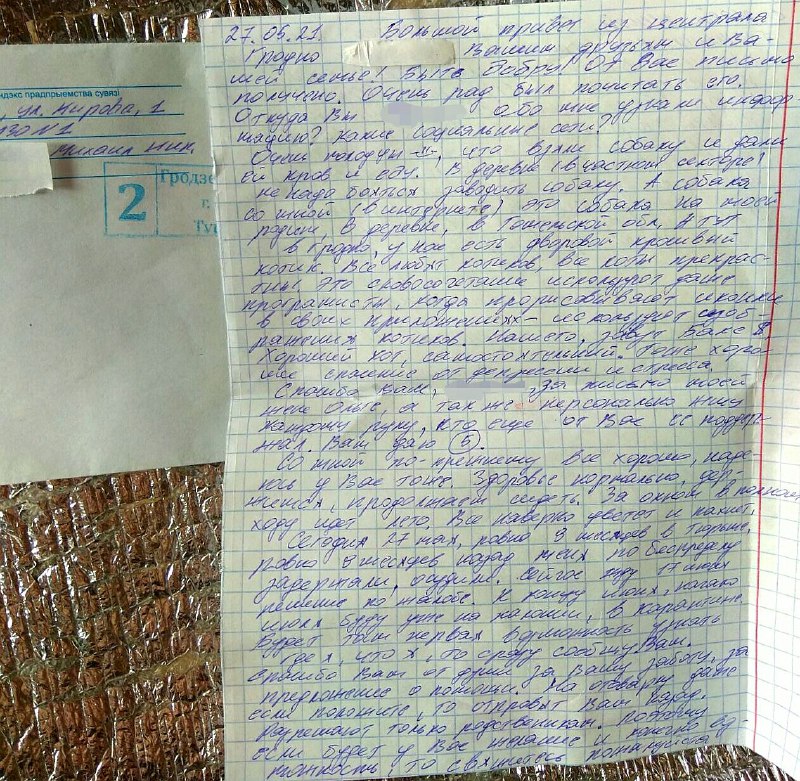 ндэкс прадпрыемства сувязі
, ул. Кирова, 1
Михаил Ник.
2
Гродзе
г.
27.05.21. Большой привет из централа
Гродно Вашим друзьям и Ва-
шей семье! Быть добру! От Вас письмо
получено. Очень рад был почитать его.
Откуда Вы обо мне узнали инфор
мацию? Какие социальные сети?
Очень молодцы, что взяли собаку и дали
ей кров и еду. В деревне (в частном секторе)
не нада бояться заводить собаку. А собака
со мной (в интернете) это собака на моей
родине в деревне, в Гомельской обл. А тут
в Гродно, у нас есть дворовой красивый
котик. Все любят котиков, все коты прекрас-
ны. Это словосочетание используют даже
програмисты, когда прорисовывают иконки
в своих приложениях - используют изоб-
ражения котиков. Нашего зовут Бакс $
Хороший кот, самостоятельный. Тоже хоро-
шее спасение от депрессии и стресса.
Спасибо Вам, за письмо моей
жене Ольге, а так же персонально жму
каждому руку, кто еще от Вас ее поддер-
жал. Вам даю 5.
Со мной по-прежнему все хорошо, наде-
юсь у Вас тоже. Здоровье нормально, дер-
жимся, продолжаем сидеть. За окном в полном
ходу идет лето. Все наверно цветет и пахнет.
Сегодня 27 мая, ровно 9 месяцев в тюрьме,
ровно 9 месяцев назад меня по беспределу
задержали, осудили. Сейчас жду 11 июня
решение по жалобе. К концу июня, начало
июля буду уже на колонии, в карантине.
Будет там первая возможность узнать
где я, что я, то сразу сообщу Вам.
Спасибо Вам от души за Вашу заботу, за
предложение о помощи. На отоварку даже
если положите, то отправят Вам назад.
Разрешают только родственникам. Поэтому
если будет у Вас желание и конечно воз-
можность, то свяжитесь пожалуйста